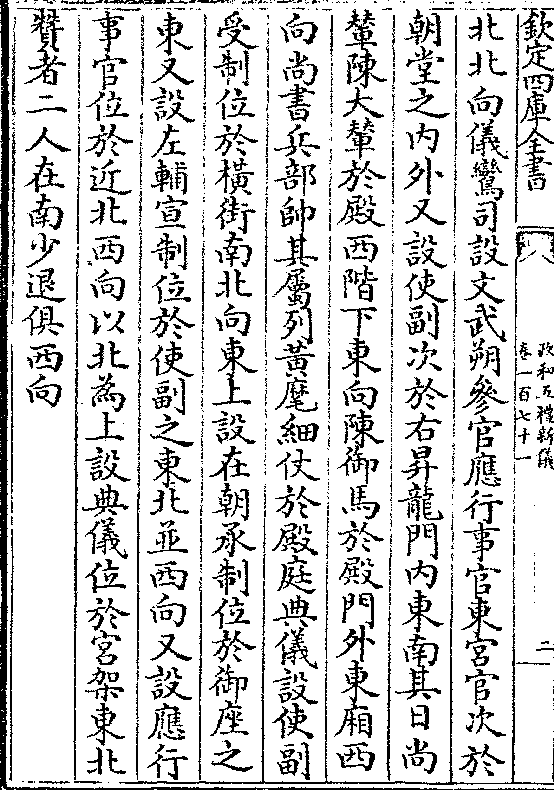 欽定四庫全書
政和五禮新儀
卷一百七十一
二
北北向儀鸞司設文武朔參官應行事官東宮官次於
朝堂之內外又設使副次於右昇龍門內東南其日尚
輦陳大輦於殿西階下東向陳御馬於殿門外東廂西
向尚書兵部帥其屬列黃麾細仗於殿庭典儀設使副
受制位於橫街南北向東上設在朝承制位於御座之
東又設左輔宣制位於使副之東北並西向又設應行
事官位於近北西向以北為上設典儀位於宮架東北
贊者二人在南少退俱西向